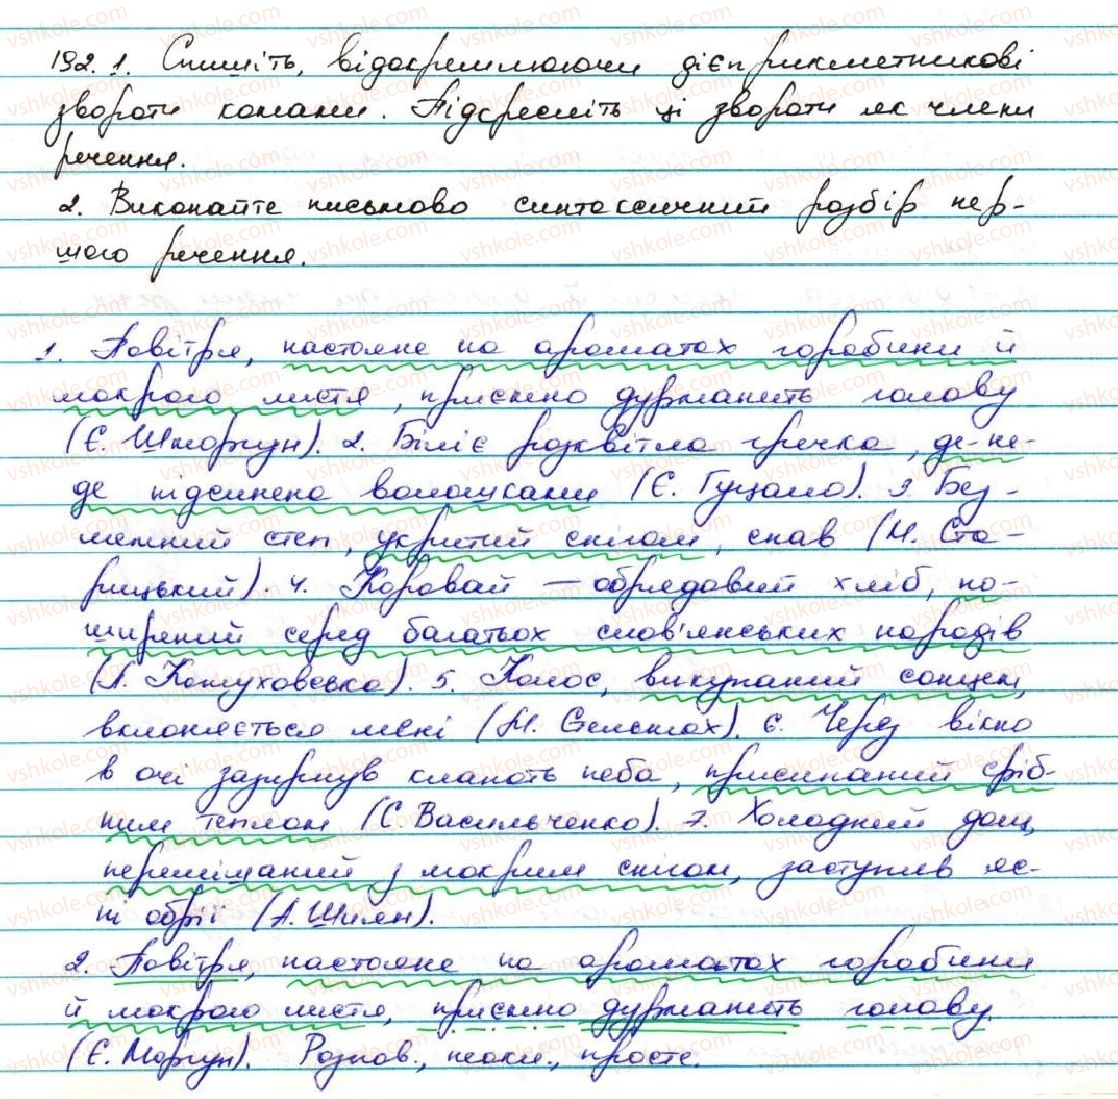 192. 1. Спишіть, відокремлюючи дієприкметникові
звороти комами. Підкресліть ці звороти як члени
речення.
2. Виконайте письмово синтаксичний розбір пер-
шого речення.
1. Повітря, настояне на ароматах горобини й
мокрого листя, приємно дурманить голову
(Є. Шморгун). 2. Біліє розквітла гречка, де-не-
де підсинена волошками (Є. Гуцало). 3. Без-
межний степ, укритий снігом, спав (М. Ста-
рицький). 4. Коровай – обрядовий хліб, по-
ширений серед багатьох слов'янських народів
(Л. Кожуховська). 5. Колос, викупаний сонцем,
вклоняється мені (М. Стельмах). 6. Через вікно
в очі зазирнув клапоть неба, присипаний сріб-
ним теплом (С. Васильченко). 7. Холодний дощ,
перемішаний з мокрим снігом, заступив яс-
ні обрії (А. Шиян).
2. Повітря, настояне на ароматах горобини
й мокрого листя, приємно дурманить голову
(Є. Моргун). Розпов., неокл., просте.